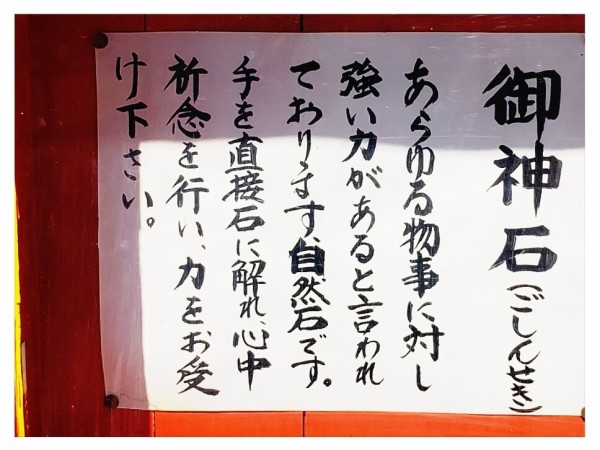 御神石(ごしんせき)
あらゆる物事に対し
強い力があると言われ
ております、自然石です。
手を直接石に解れ、心中
祈念を行い、力をお受
け下さい。